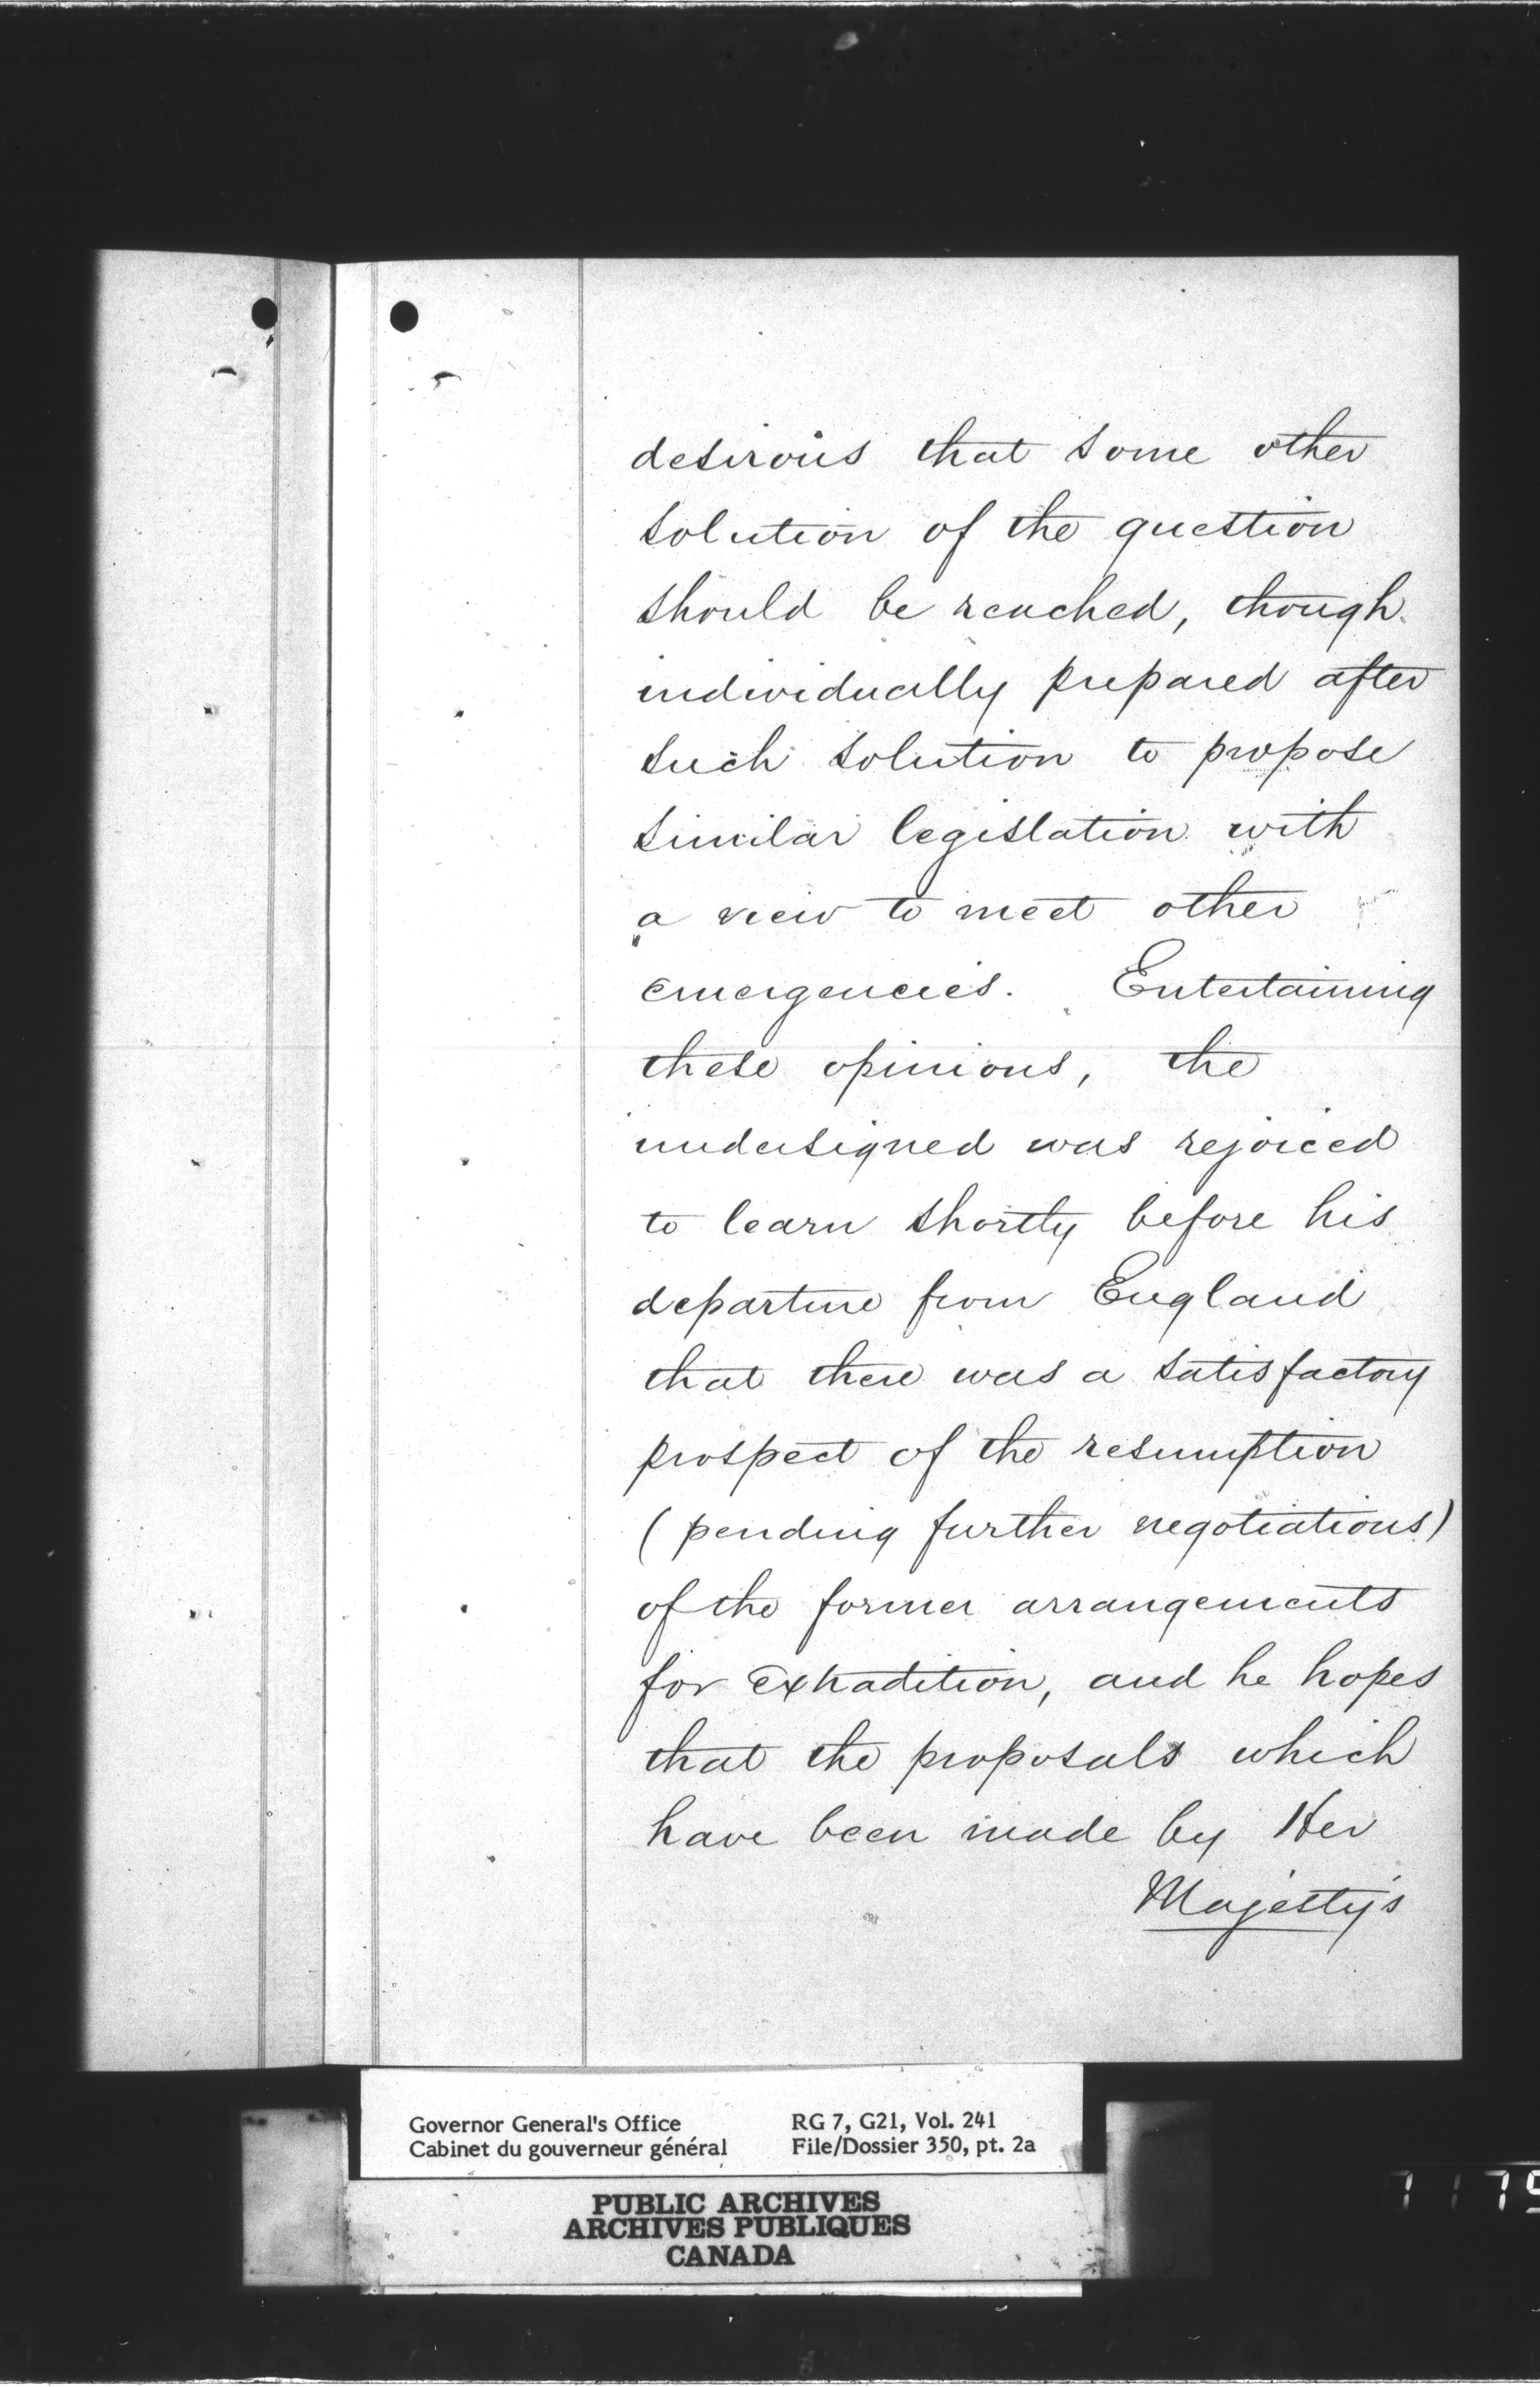 desirous that some other
solution of the question
should be reached, though
individually prepared after
such solution to propose
similar legislation with
a view to meet other
emergencies. Entertaining
these opinions, the
undersigned was rejoiced
to learn shortly before his
departure from England
that there was a satisfactory
prospect of the resumption
(pending further negotiations)
of the former arrangements
for Extradition, and he hopes
that the proposals which
have been made by Her
Majesty's
Governor General's Office
Cabinet du gouverneur général
RG 7, G21, Vol. 241
File/Dossier 350, pt. 2a
PUBLIC ARCHIVES
ARCHIVES PUBLIQUES
CANADA